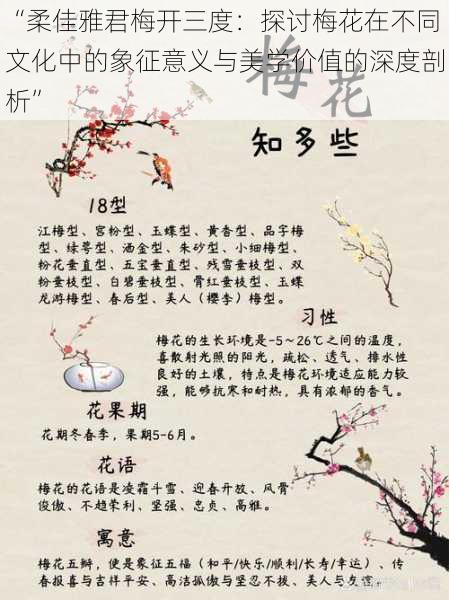 “柔佳雅君梅开三度：探讨梅花在不同
文化中的象征意义与美学价值的深度剖
析”
梅花
知多些
18型
江梅型、宫粉型、玉蝶型、黄香型、品字梅
型、绿萼型、洒金型、朱砂型、小细梅型、
粉花垂直型、五宝垂直型、残雪垂枝型、双
粉垂枝型、白碧垂枝型、骨红垂枝型、玉蝶
龙游梅型、春后型、美人（樱李）梅型。
习性
梅花的生长环境是-5~26℃之间的温度，
喜散射光照的阳光，疏松、透气、排水性
良好的土壤，特点是梅花环境适应能力较
强，能够抗寒和耐热，具有浓郁的香气。
花果期
花期冬春季，果期5-6月。
花语
梅花的花语是凌霜斗雪、迎春开放、风骨
俊傲、不趋荣利、坚强、忠贞、高雅。
寓意
梅花五瓣，使是象征五福（和平/快乐/顺利/长寿/幸运）、传
春报喜与吉祥平安、高洁孤傲与坚忍不拔、美人与友谊